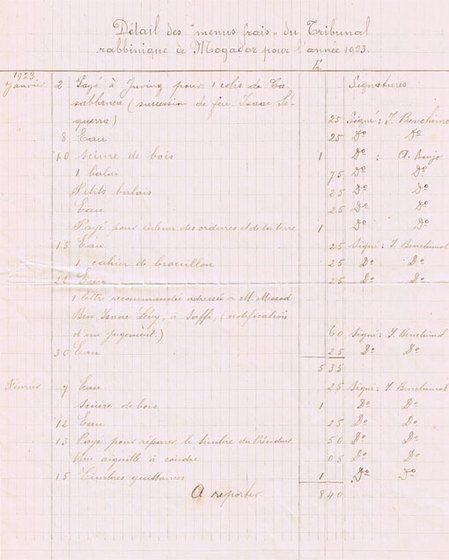 Détail des "menus frais" du Tribunal
rabbinique de Mogador pour l'année 1923.
Fr.
1923
Janvier 2 Payé à Juving pour 1 colis de Ca- Signatures
sablanca (succession de feu Isaac Sé-
guerra) 25 Signé: J. Benchimol
8 Eau 25 Do Do
10 Sciure de bois 1 Do : A. Benjo
1 balai 75 Do Do
Petits balais 25 Do Do
Eau 25 Do Do
Payé pour enlever des ordures et de la terre 1 Do Do
15 Eau 25 Signé: J. Benchimol
1 cahier de brouillon 25 Do Do
22 Eau 25 Do Do
1 lettre recommandée adressée à M. Messod
Ben Isaac Lévy, à Saffi, (notification
d'un jugement.) 60 Signé: J. Benchimol
30 Eau 25 Do Do
5 35
Février 7 Eau 25 Signé: J. Benchimol
Sciure de bois 1 Do Do
12 Eau 25 Do Do
13 Payé pour réparer le timbre du Président 50 Do Do
Une aiguille à coudre 05 Do Do
15 Timbres quittances 1 Do Do
A reporter 8 40